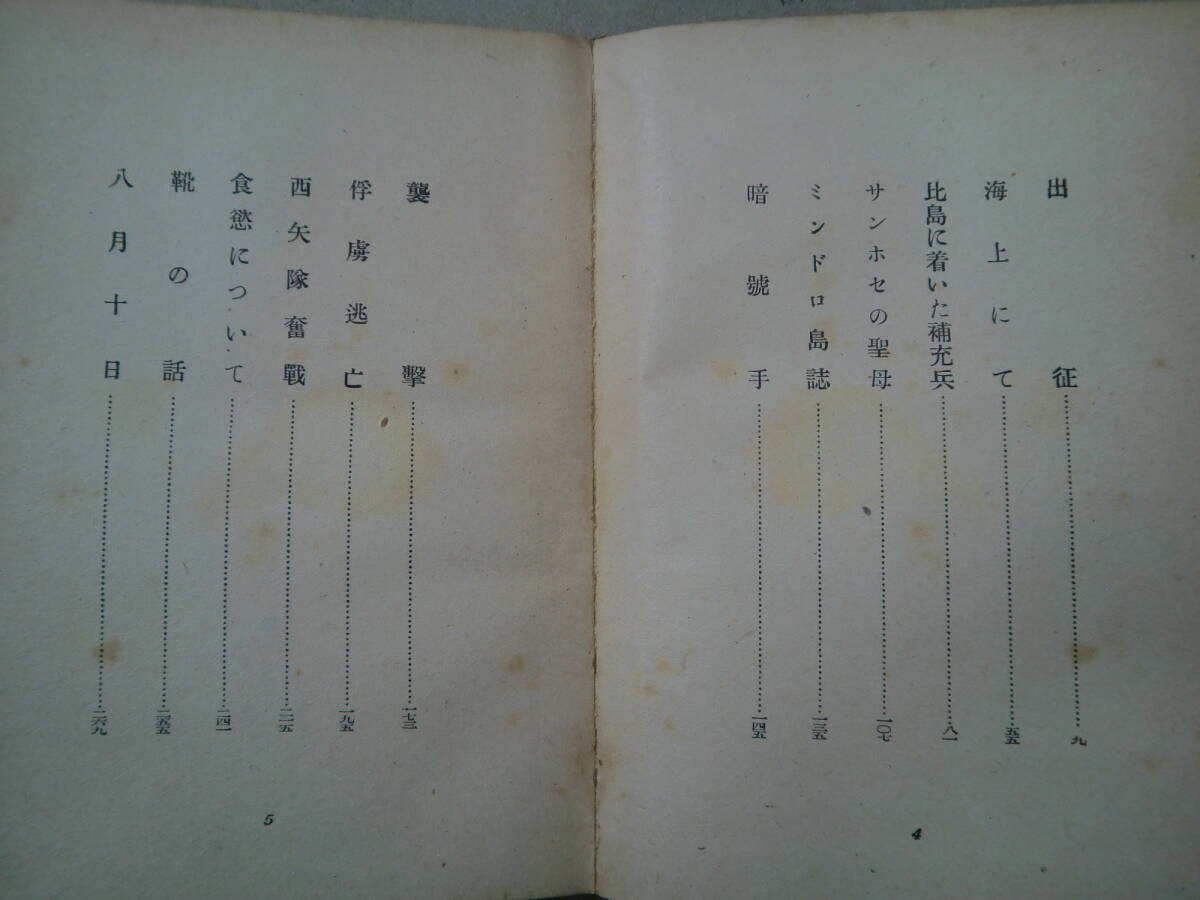 出征……九
海上にて……五五
比島に着いた補充兵……八一
サンホセの聖母……一〇七
ミンドロ島誌……一三五
暗號手……一四五
4
襲擊……一七三
俘虜逃亡……一九五
西矢隊奮戰……二一五
食慾について……二四一
靴の話……二五五
八月十日……二六九
5